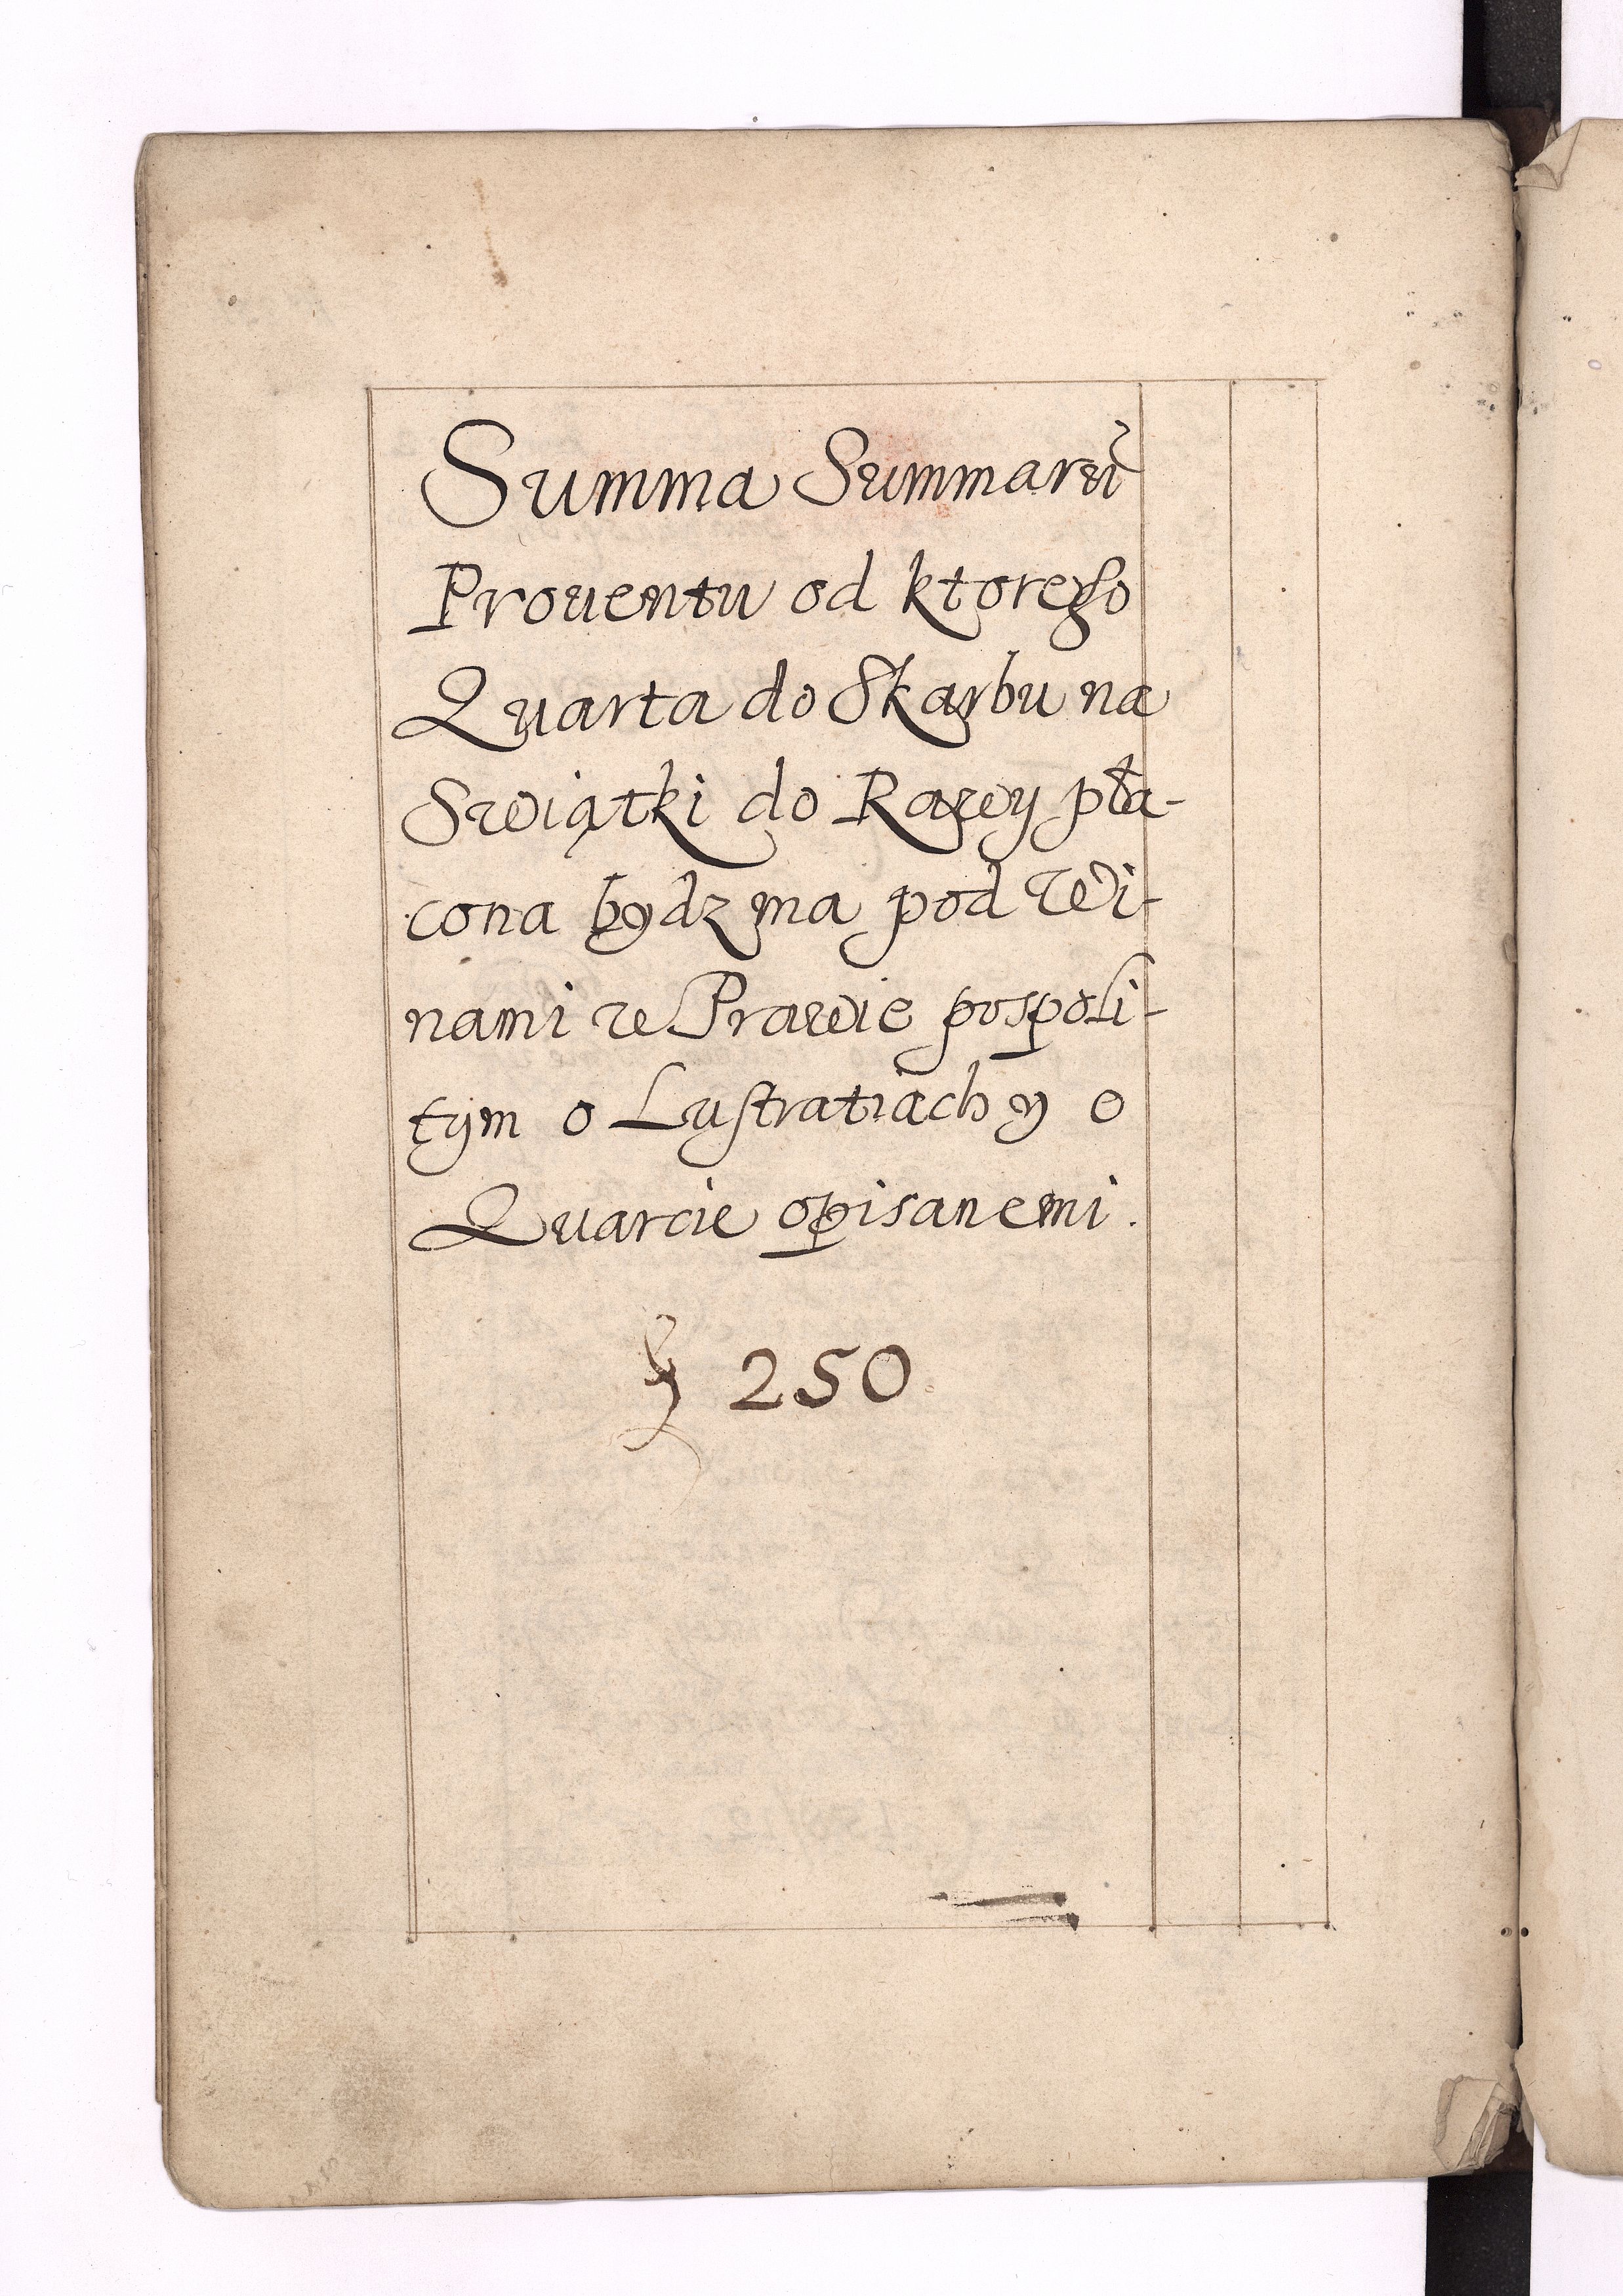 Summa Summarũ
Prouentu od ktorego
Quarta do Skarbu na
Swiątki do Rawy pła-
cona bydz ma pod Wi-
nami w Prawie pospoli-
tym o Lustratiach y o
Quarcie opisanemi.
250